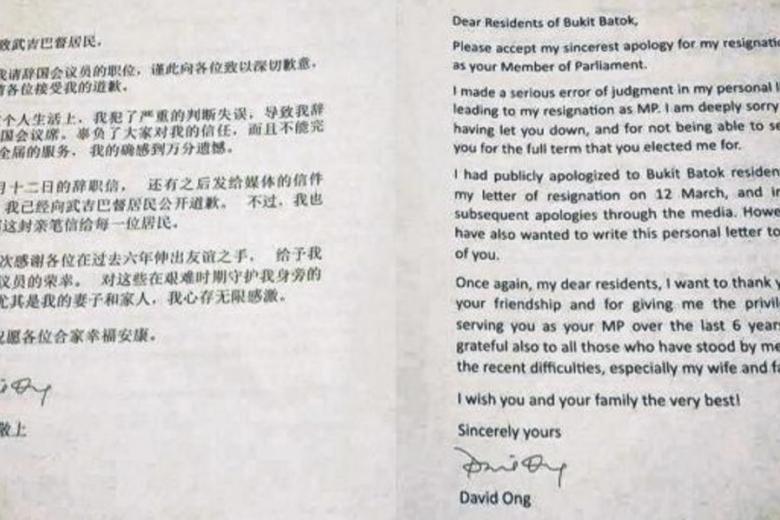 致武吉巴督居民，
我请辞国会议员的职位，谨此向各位致以深切歉意，
请各位接受我的道歉。
个人生活上，我犯了严重的判断失误，导致我辞
国会议席。辜负了大家对我的信任，而且不能完
全届的服务，我的确感到万分遗憾。
月十二日的辞职信， 还有之后发给媒体的信件
我已经向武吉巴督居民公开道歉。 不过，我也
这封亲笔信给每一位居民。
次感谢各位在过去六年伸出友谊之手， 给予我
议员的荣幸。 对这些在艰难时期守护我身旁的
尤其是我的妻子和家人，我心存无限感激。
祝愿各位合家幸福安康。
敬上
Dear Residents of Bukit Batok,
Please accept my sincerest apology for my resignatio
as your Member of Parliament.
I made a serious error of judgment in my personal l
leading to my resignation as MP. I am deeply sorry
having let you down, and for not being able to se
you for the full term that you elected me for.
I had publicly apologized to Bukit Batok residen
my letter of resignation on 12 March, and in
subsequent apologies through the media. Howe
have also wanted to write this personal letter to
of you.
Once again, my dear residents, I want to thank y
your friendship and for giving me the privil
serving you as your MP over the last 6 years
grateful also to all those who have stood by me
the recent difficulties, especially my wife and fa
I wish you and your family the very best!
Sincerely yours
David Ong
David Ong